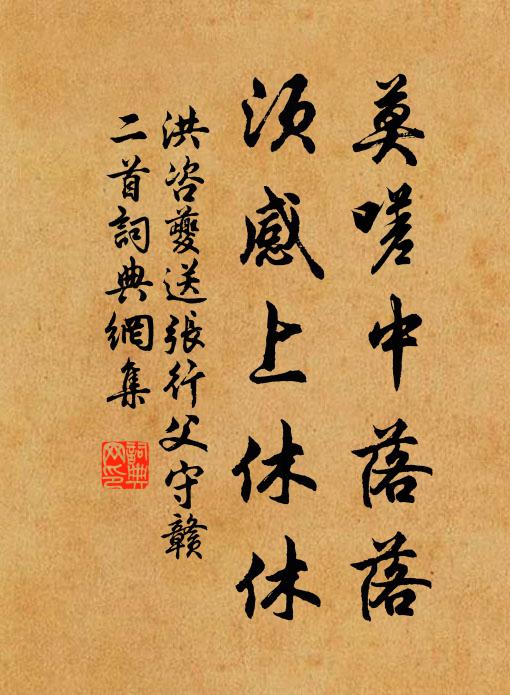 莫嗟中落落
須感上休休
洪咨夔送張行父守贛
二首詞典網集
詞典
网印